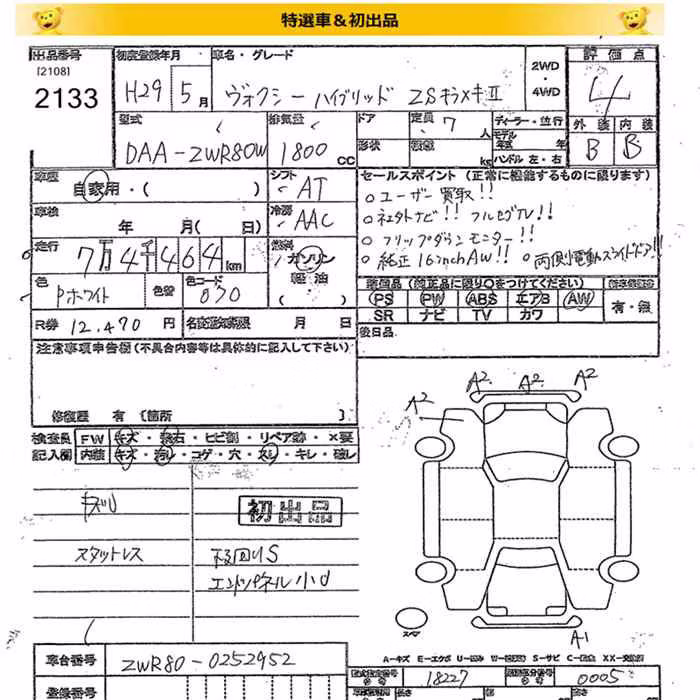 特選車＆初出品
出品番号
[2108]
2133
初度登録年月
H29 5月
車名・グレード
ヴォクシー ハイブリッド ZSキラメキⅡ
2WD
・
4WD
評価点
4
外装 内装
B B
型式
DAA-ZWR80W
排気量
1800 CC
ドア
形状
定員 7 人
積載 kg
ディーラー・並行
モデル
年式 年
ハンドル 左・右
車歴
自家用・( )
シフト
AT
車検
年 月( 日)
冷房
AAC
走行
7万4千464km
燃料
ガソリン
軽油
・( )
色
Pホワイト
色替
色コード
070
R券 12,470 円
名変期限 月 日
セールスポイント (正常に機能するものに限ります)
○ユーザー買取!!
○社外ナビ!! フルセグTV!!
○フリップダウンモニター!!
○純正16inchAW!! ○両側電動スライドドア!!
装備品 (純正品に限り○をつけてください)
PS PW ABS エアB AW
SR ナビ TV カワ
有・無
後日品
注意事項申告欄 (不具合内容等は具体的に記入して下さい)
修復歴 有 〔箇所 〕
検査員 FW キズ・飛石・ヒビ割・リペア跡・×要
記入欄 内装 キズ・汚レ・コゲ・穴・スレ・キレ・破レ
初出品
スタットレス
下回りS
A2 A2 A2
A2
スペア
A1
A-キズ E-エクボ U-凹み W-補修跡 S-サビ C-腐食 XX-交換済
車台番号
ZWR80-0252952
型式指定番号
18227
類別区分番号
0005
登録番号